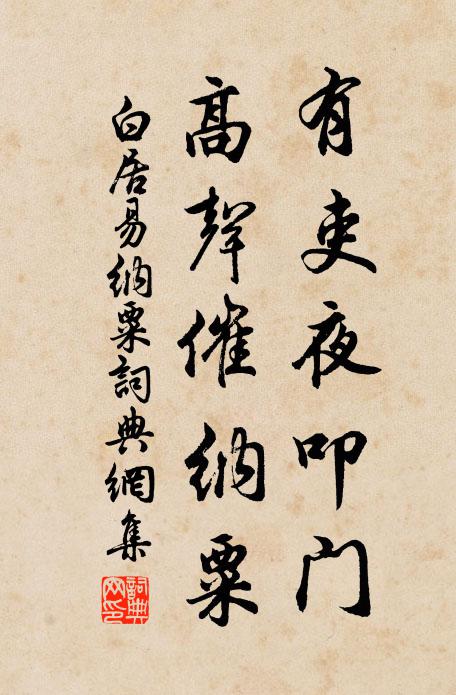 有吏夜叩门
高聲催纳粟
白居易纳粟詞典網集
詞典网印